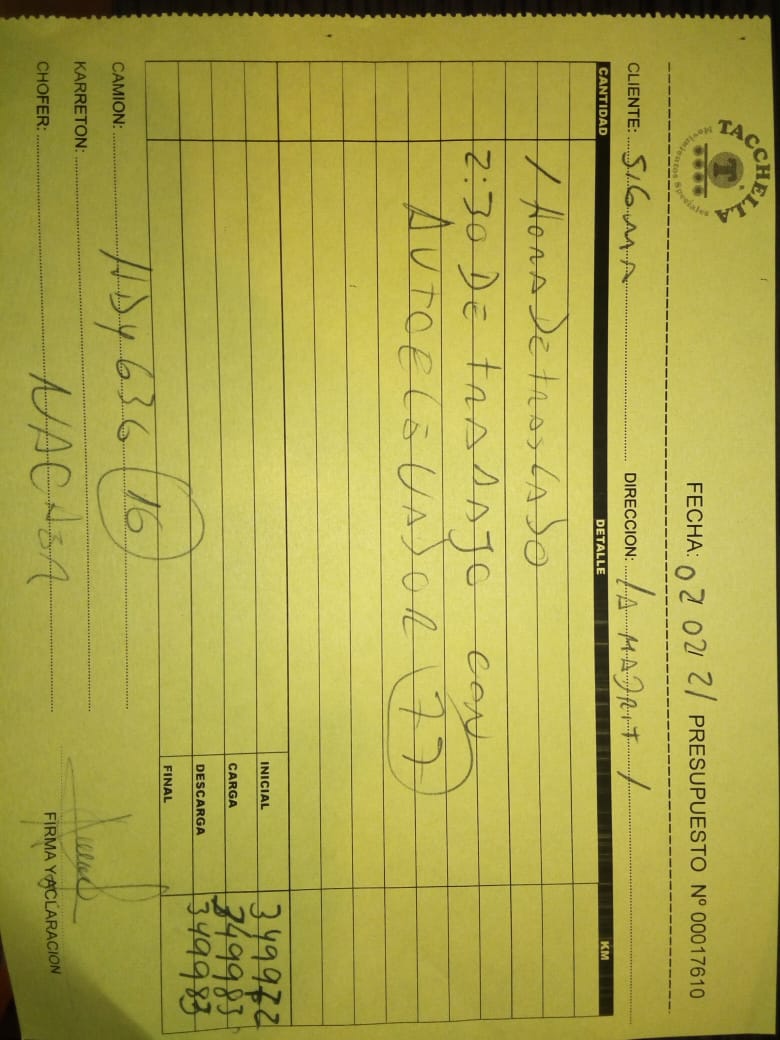 TACCHELLA
Movimientos Speciales
T
FECHA: 02 02 21 PRESUPUESTO Nº 00017610
CLIENTE: SIGMA DIRECCION: LA MADRIT
CANTIDAD DETALLE KM
1 HORA DE TRASLADO
2:30 DE TRABAJO CON
AUTOELEVADOR 77
INICIAL 349972
CARGA 349983
DESCARGA 349983
FINAL
CAMION: 16
KARRETON:
CHOFER:
FIRMA Y ACLARACION